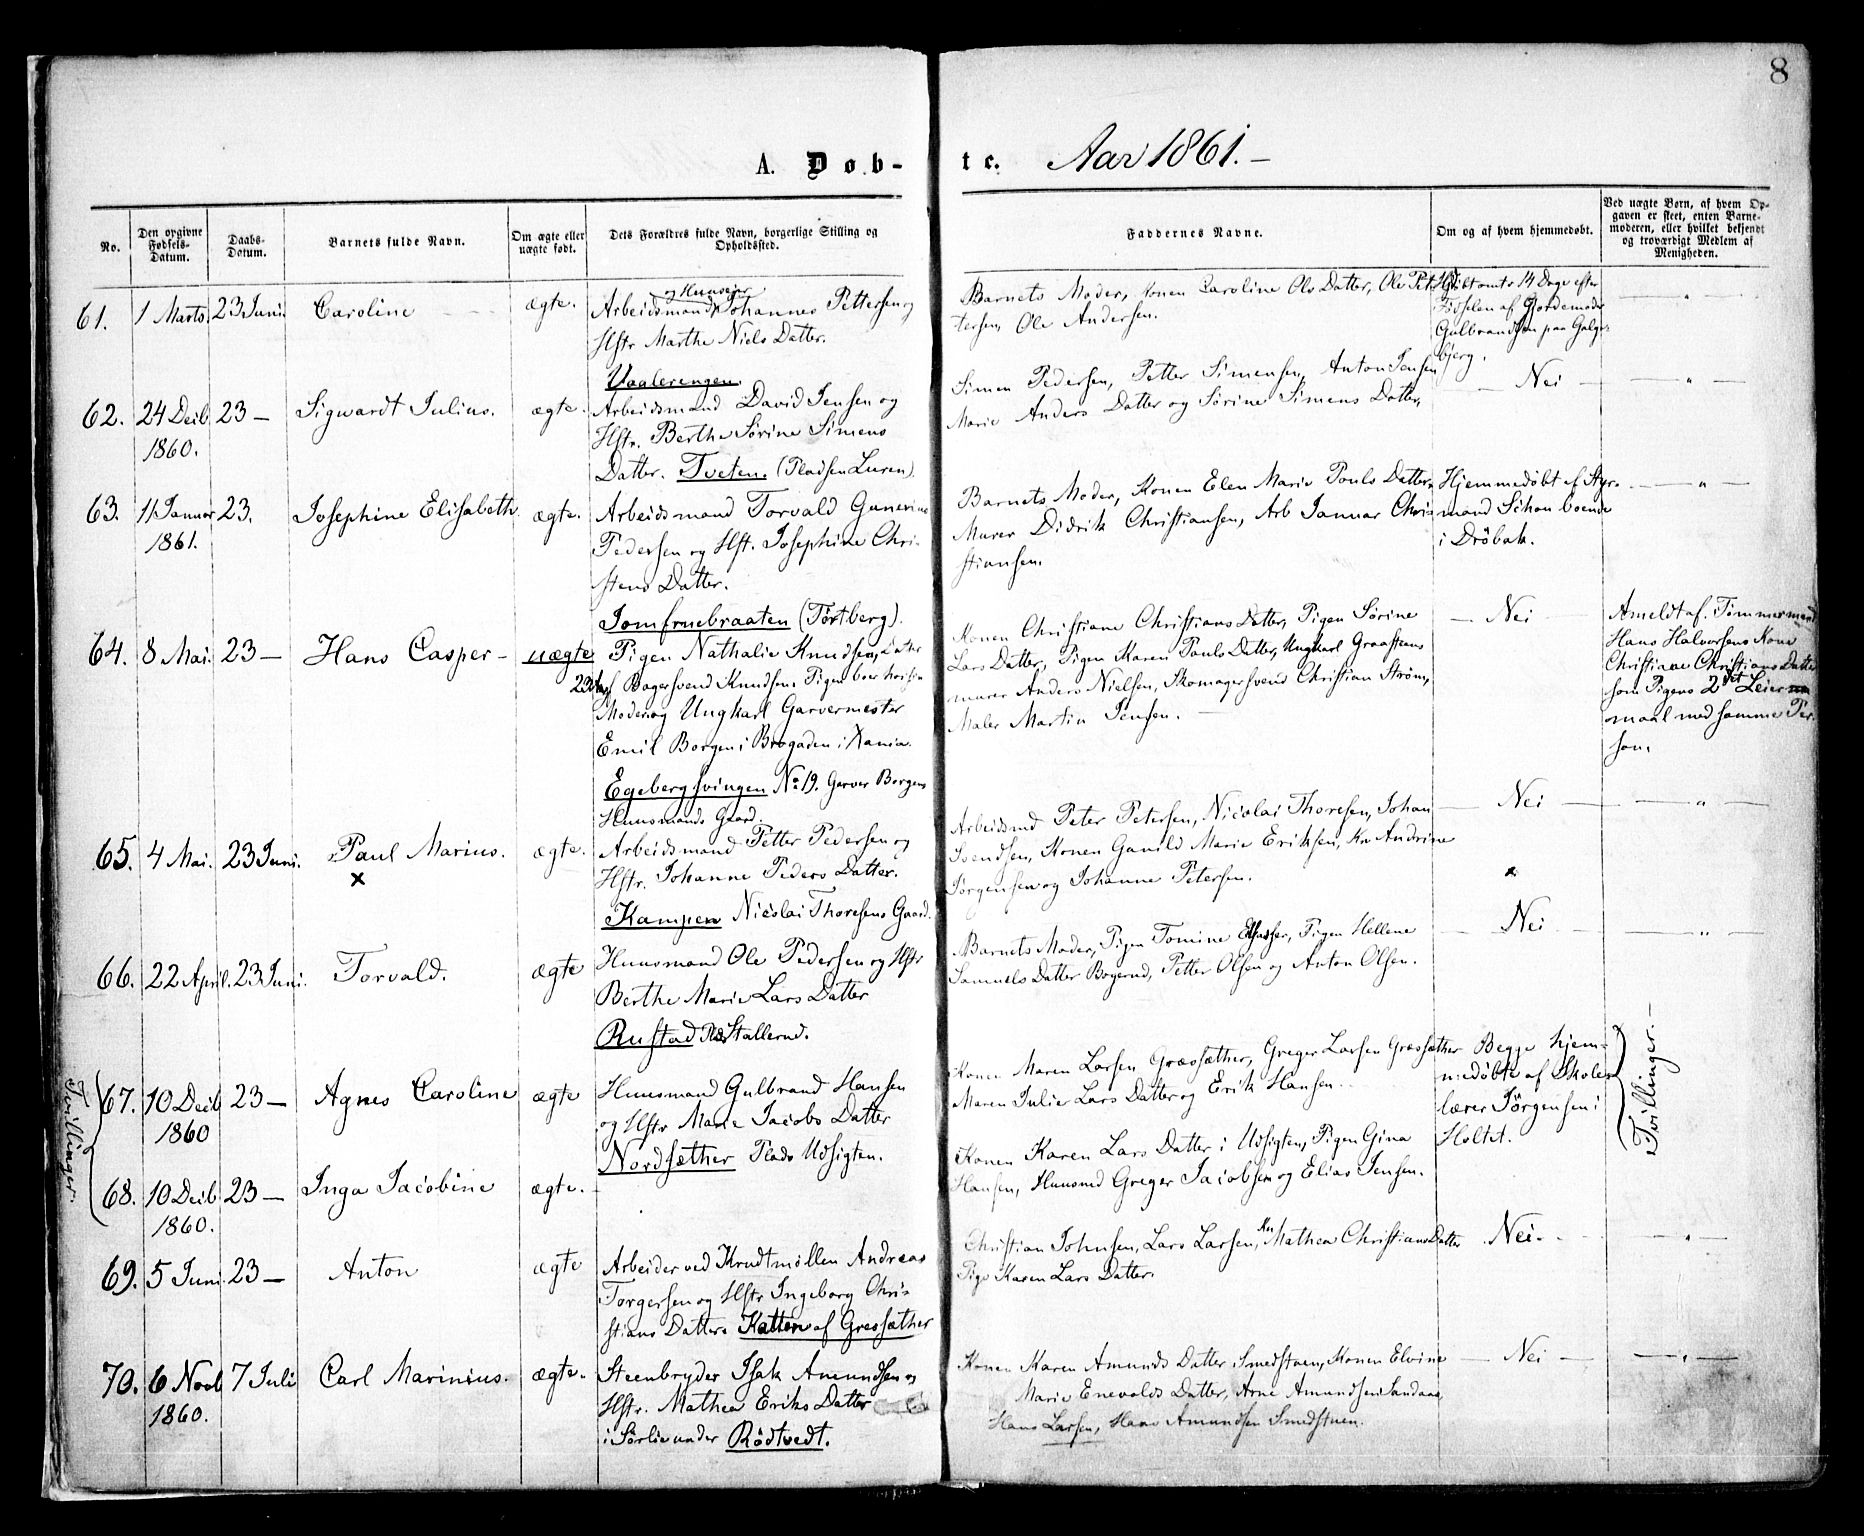 8
A. Døb-te. Aar 1861.—
No.
Den opgivne Fødsels-Datum.
Daabs-Datum.
Barnets fulde Navn.
Om ægte eller uægte født.
Dets Forældres fulde Navn, borgerlige Stilling og Opholdssted.
Faddernes Navne.
Om og af hvem hjemmedøbt.
Ved uægte Børn, af hvem Opgaven er skeet, enten Barnemoderen, eller hvilket bekjendt og troværdigt Medlem af Menigheden.
61. 1 Marts. 23 Juni. Caroline ægte.
og Huuseier
Arbeidsmand Johannes Pettersen og
Hstr Marthe Niels Datter.
Vaalerengen.
Barnets Moder, Konen Caroline Ols Datter, Ole Pet-
tersen, Ole Andersen.
14 Dage efter
Fødselen af Gjordemoder
Gulbrandsen paa Galge-
bjerg.
62. 24 Decb 1860. 23 — Sigwardt Julius. ægte.
Arbeidsmand David Jensen og
Hstr. Berthe Sørine Simens
Datter. Tveten. (Pladsen Luren).
Simen Pedersen, Petter Simensen, Anton Jensen
Marie Anders Datter og Sørine Simens Datter,
— Nei —
63. 11 Januar 1861. 23. Josephine Elisabeth. ægte.
Arbeidsmand Torvald Gunerius
Pedersen og Hst. Josephine Chri-
stens Datter.
Jomfruebraaten (Tørtberg).
Barnets Moder, Konen Elen Marie Pouls Datter,
Murer Didrik Christiansen, Arb Januar Chri-
stiansen.
Hjemmedøbt af Styr-
mand Schou boende
i Drøbak.
64. 8 Mai. 23 — Hans Casper — uægte
Pigen Nathalie Knudsen, Dater
af Bagersvend Knudsen. Pigen boer hos sin
Moder og Ungkarl Garvermester
Emil Borgen i Brogaden i Xania.
Egebergsvingen No 19. Garver Borgens
Huusmands Gaard.
Konen Christiane Christians Datter, Pigen Sørine
Lars Datter, Pigen Karen Pauls Datter, Ungkarl Graasteens
murer Anders Nielsen, Skomagersvend Christian Strøm,
Maler Martin Jensen. —
— Nei
Anmeldt af Tømmermand
Hans Halvorsens Kone
Christiane Christians Datter
som Pigens 2det Leier
maal med samme Per-
son.
65. 4 Mai. 23 Juni. Paul Marius. ægte.
x
Arbeidsmand Petter Pedersen og
Hstr. Johanne Peders Datter.
Kampen Nicolai Thoresens Gaard.
Arbeidsmd Peter Petersen, Nicolai Thoresen, Johan
Svendsen, Konen Gunild Marie Eriksen, Kn Andrine
Jørgensen og Johanne Petersen.
— Nei —
x
66. 22 April. 23 Juni. Torvald. ægte
Huusmand Ole Pedersen og Hstr
Berthe Marie Lars Datter
Rustad Pls Stallerud.
Barnets Moder, Pigen Tomine, Pigen Hellene
Samuels Datter Bogerud, Petter Olsen og Anton Olsen.
— Nei —
Tvillinger
67. 10 Decb 1860 23 — Agnes Caroline ægte
Huusmand Gulbrand Hansen
og Hstr Marie Jacobs Datter
Nordsæther Plads Udsigten.
Konen Maren Larsen Græssæther, Greger Larsen Græssæther
Maren Julie Lars Datter og Erik Hansen.
Begge hjem-
medøbte af Skole-
lærer Jörgensen i
Holtet.
Tvillinger. —
68. 10 Decb 1860. 23 — Inga Jacobine ægte.
Konen Karen Lars Datter i Udsigten, Pigen Gina
Hansen, Huusmd Greger Jacobsen og Elias Jensen.
69. 5 Juni 23 — Anton ægte
Arbeider ved Krudtmøllen Andreas
Torgersen og Hstr Ingeborg Chri-
stians Datter. Katten af Gressæther
Christian Johnsen, Lars Larsen, Kn Mathea Christians Datter
Pige Karen Lars Datter.
Nei.
70. 6 Novb 1860. 7 Juli Carl Marinius. ægte.
Steenbryder Isak Amundsen og
Hstr. Mathea Eriks Datter
i Sørlie under Rödtvedt.
Konen Karen Amunds Datter Smedstuen, Konen Elvine
Marie Enevolds Datter, Arne Amundsen Sandaas
Hans Larsen, Hans Amundsen Smedstuen.
— Nei —